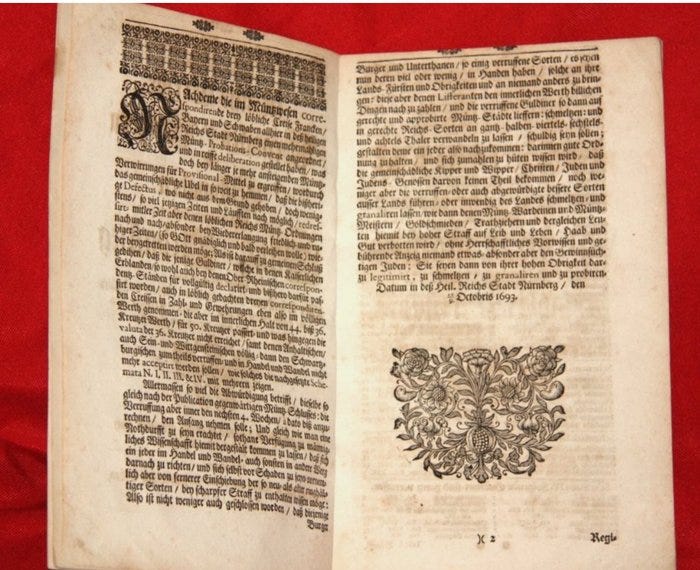 NAchdeme die im Müntzwesen corre-
spondirende drey löbliche Creise Francken /
Bayern und Schwaben allhier in des heiligen
Reichs Stadt Nürnberg einen mehrmaligen
Müntz-Probations-Convent angeordnet /
und in reiffe deliberation gezogen haben / was
doch bey länger je mehr ansteigenden Müntz-
Verwirrungen für Provisional-Mittel zu ergreiffen / wordurch
das gemeinschädliche Ubel in so weit zu hemmen / daß die bißheri-
ge Defectus, wo nicht aus dem Grund gehoben / doch wenig-
stens / so viel jetzigen Zeiten und Läufften nach möglich / redres-
sirt, mitler Zeit aber denen löblichen Reichs Müntz-Ordnungen
nach und nach / absonders bey Widererlangung friedlich- und ru-
higer Zeiten / (so GOtt gnädiglich und bald verleihen wolle) wie-
der beygetretten werden möge; Als ist darauf zu gemeinem Schluß
gediehen / daß die jenige Guldiner / welche in denen Käiserlichen
Erblanden / so wohl auch bey denen Ober-Rheinischen correspon-
denz-Ständen für vollgültig declarirt / und bißhero dafür pas-
sirt worden / auch in löblich gedachten dreyen correspondiren-
den Creissen in Zahl- und Gewehrungen eben also im völligen
Werth genommen, die aber im innerlichen Halt von 44. biß 36.
Kreutzer Werth / für 50. Kreutzer passirt / und was hingegen die
valuta der 36. Kreutzer nicht erreichet / samt denen Anhaltischen /
auch Sein- und Wittgensteinischen völlig: dann den Schwartz-
burgischen zum theils verruffen / und in Handel und Wandel nicht
mehr acceptirt werden sollen / wie solches die nachgesetzte Sche-
mata N. I. II. III. & IV. mit mehrern zeigen.
Allermassen so viel die Abwürdigung betrifft / dieselbe so
gleich nach der Publication gegenwärtigen Müntz-Schlusses: die
Verruffung aber inner den nechsten 4. Wochen / à dato diß anzu-
rechnen / den Anfang nehmen solle; Und gleich wie man eine
Nothdurfft zu seyn erachtet / sothane Verfügung zu männig-
liches Wissenschafft hiemit dergestalt kommen zu lassen / daß sich
ein jeder im Handel und Wandel, auch sonsten in andere Weg
darnach zu richten / und sich selbst vor Schaden zu seyn vornem-
lich aber von fernerer Einschiebung der so neu- als alter
tiger Sorten / bey scharpfer Straff zu enthalten wissen möge:
Also ist nicht weniger auch geschlossen worden / daß diejenige
Burger
Burger und Unterthanen / so einig verruffene Sorten / es seyen
nun deren viel oder wenig / in Handen haben / solche an ihre
Lands-Fürsten und Obrigkeit und an niemand anders zu brin-
gen: diese aber denen Lifferanten den innerlichen Werth billichen
Dingen nach zu zahlen / und die verruffene Guldiner so dann auf
gerechte und approbirte Müntz-Städte lieffern: schmeltzen: und
in gerechte Reichs-Sorten an gantz- halben- viertels- sechstels-
und achtels Thaler verwandeln zu lassen / schuldig seyn sollen;
gestalten deme ein jeder also nachzukommen: darinnen gute Ord-
nung zu halten / und sich zumahlen zu hüten wissen wird / daß
die gemeinschädliche Kipper und Wipper / Christen / Juden und
Judens-Genossen darvon keinen Theil bekommen / noch we-
niger aber die verruffen- oder auch abgewürdigte bessere Sorten
ausser Lands führen- oder inwendig des Lands schmeltzen / und
granaliren lassen / wie dann denen Müntz-Wardeinen und Müntz-
Meistern / Goldschmieden / Trathziehern und dergleichen Leu-
ten hiemit bey hoher Straff an Leib und Leben / Haab und
Gut verbotten wird / ohne Herrschafftliches Vorwissen und ge-
bührende Anzeig niemand etwas- absonder aber den Gewinnsüch-
tigen Juden; Sie seyen dann von ihrer hohen Obrigkeit dar-
zu legitimirt / zu schmeltzen / zu granaliren und zu probiren.
Datum in deß Heil. Reichs Stadt Nürnberg / den
Octobris 1693.
)( 2
Regi-